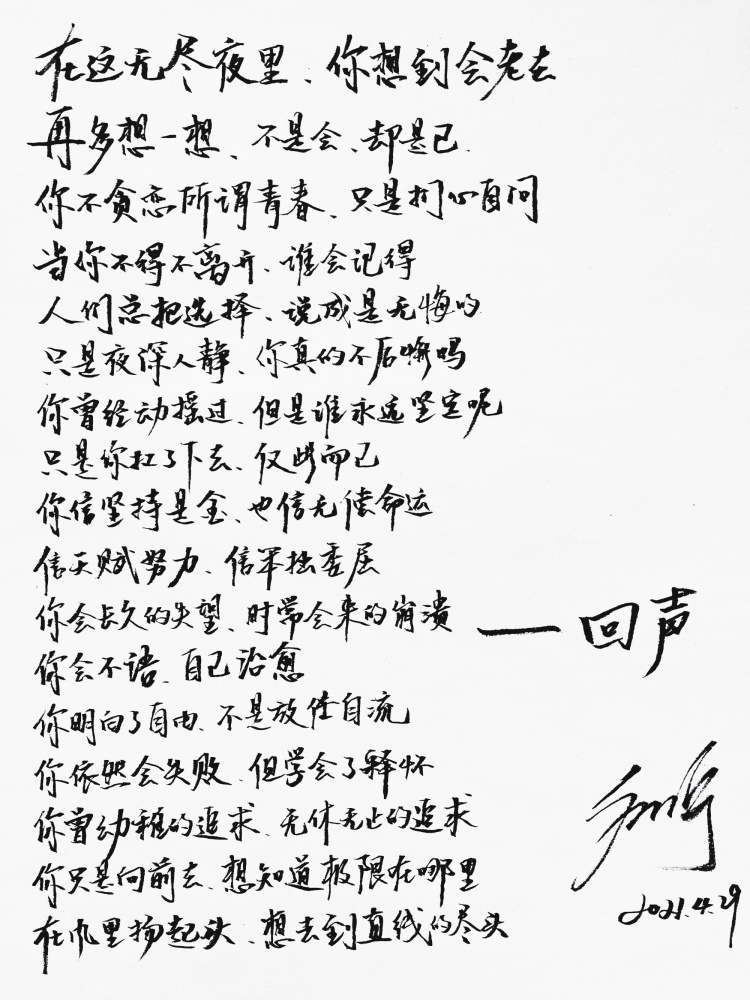 在这无尽夜里、你想到会老去
再多想一想、不是会、却是已
你不贪恋所谓青春、只是扪心自问
当你不得不离开、谁会记得
人们总把选择、说成是无悔的
只是夜深人静、你真的不后悔吗
你曾经动摇过、但是谁永远坚定呢
只是你扛了下去、仅此而已
你信坚持是金、也信无偿命运
信天赋努力、信笨拙委屈
你会长久的失望、时常会来的崩溃
你会不语、自己治愈
你明白了自由、不是放任自流
你依然会失败、但学会了释怀
你曾幼稚的追求、无休无止的追求
你只是向前去、想知道极限在哪里
在风里扬起头、想去到直线的尽头
一回声
2021.4.29